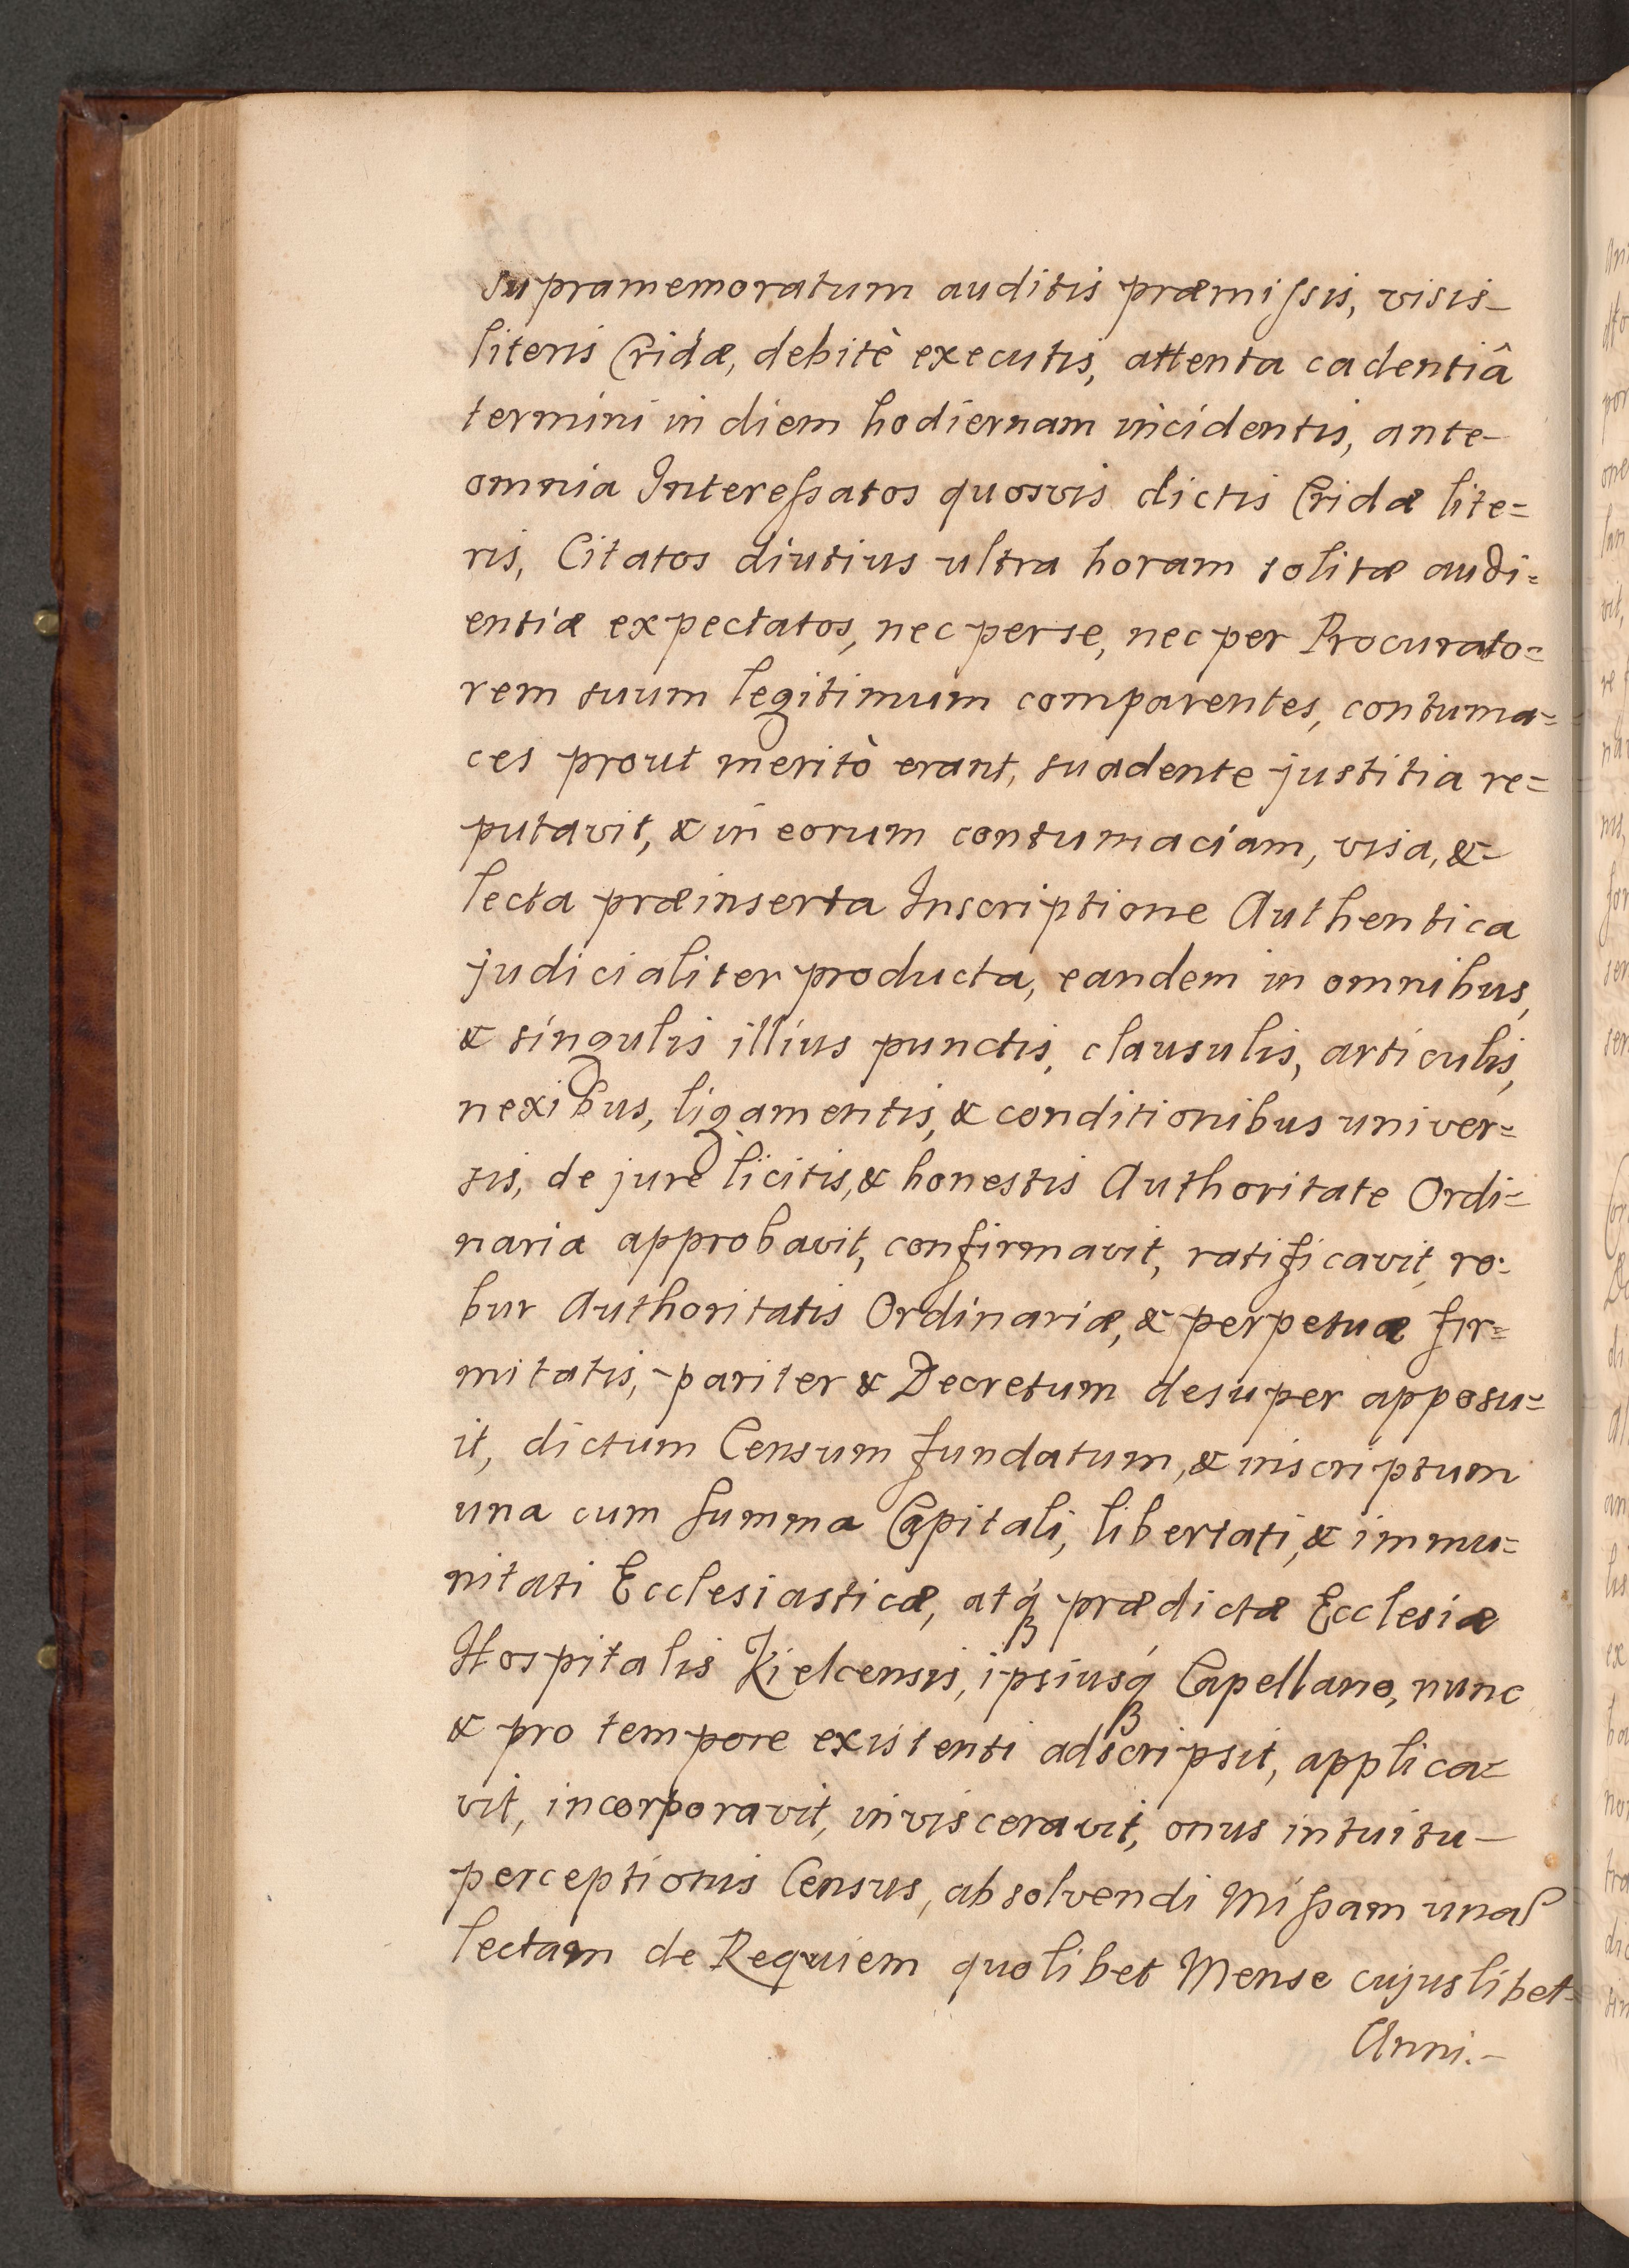 supramemoratum auditis præmiſsis, visis-
literis Cridæ, debitè executis, attenta cadentiâ
termini in diem hodiernam incidentis, ante-
omnia Intereſsatos quosvis dictis Cridæ lite=
ris, Citatos diutius ultra horam solitæ audi=
entiæ expectatos, nec per se, nec per Procurato=
rem suum legitimum comparentes, contuma=
ces prout meritò erant, suadente justitia re=
putavit, & in eorum contumaciam, visa, &-
lecta præinserta Inscriptione Authentica
judicialiter producta, eandem in omnibus,
& singulis illius punctis, clausulis, articulis,
nexibus, ligamentis, & conditionibus univer=
sis, de jure licitis, & honestis Authoritate Ordi=
naria approbavit, confirmavit, ratificavit, ro=
bur Authoritatis Ordinariæ, & perpetuæ fir=
mitatis, pariter & Decretum desuper apposu=
it, dictum Censum fundatum, & inscriptum
una cum Summa Capitali, libertati, & immu=
nitati Ecclesiasticæ, atqꝫ prædictæ Ecclesiæ
Hospitalis Kielcensis, ipsiusqꝫ Capellano, nunc
& pro tempore existenti adscripsit, applica=
vit, incorporavit, invisceravit, onus intuitu-
perceptionis Census, absolvendi Miſsam unam
lectam de Requiem quolibet Mense cujuslibet=
Anni.-